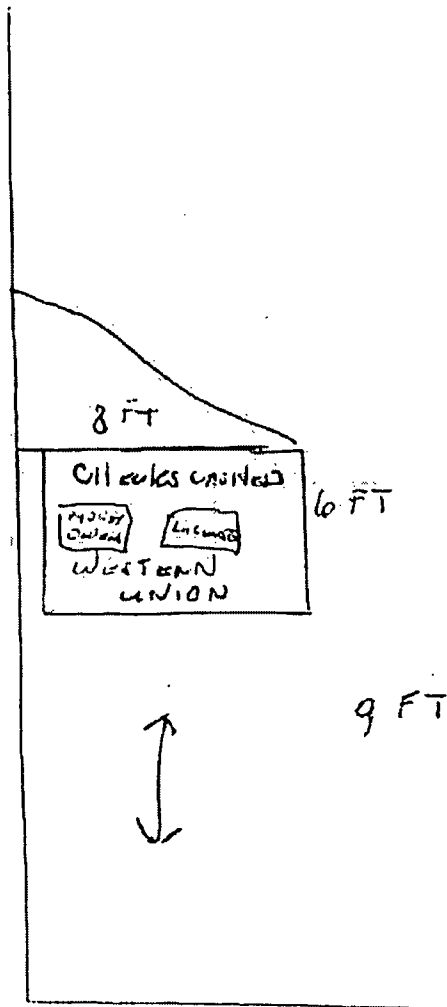 8 FT
CHECKS CASHED
6 FT
MONEY
ORDER
WESTERN
UNION
9 FT